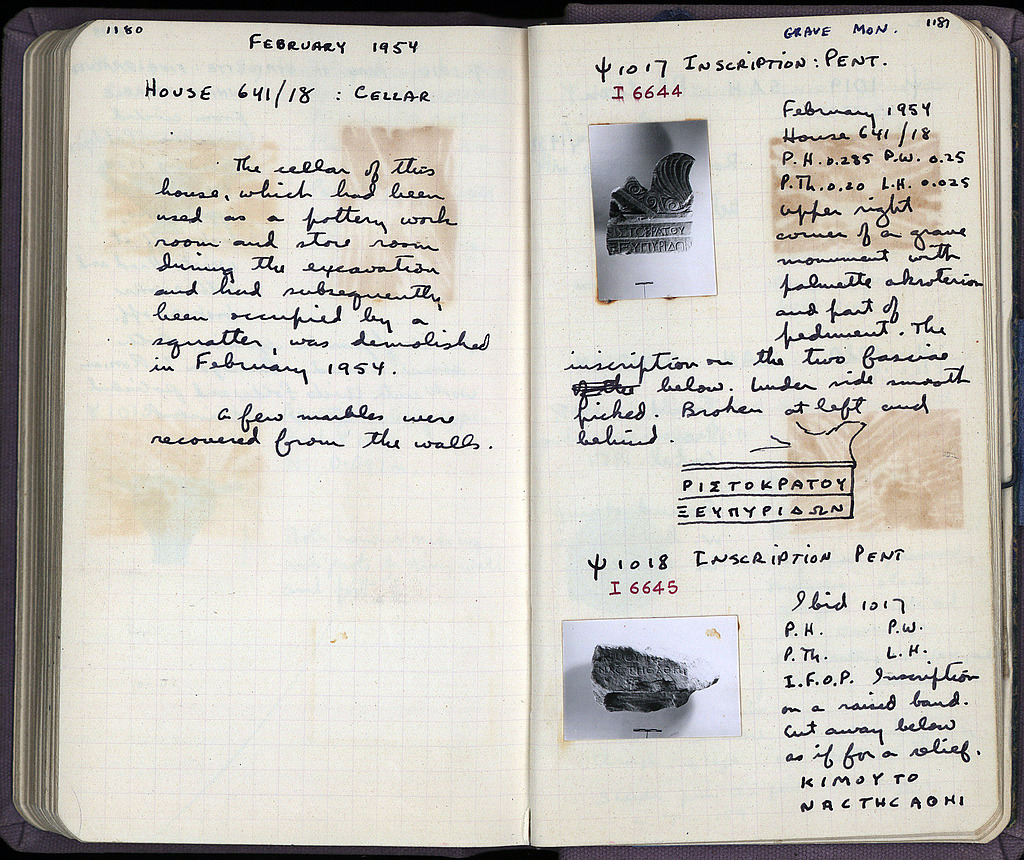 1180
FEBRUARY 1954
HOUSE 641/18 : CELLAR
The cellar of this
house, which had been
used as a pottery work
room and store room
during the excavation
and had subsequently
been occupied by a
squatter, was demolished
in February 1954.
A few marbles were
recovered from the walls.
1181
GRAVE MON.
Ψ 1017 INSCRIPTION: PENT.
I 6644
February 1954
House 641/18
P.H. 0.285 P.W. 0.25
P.Th. 0.20 L.H. 0.025
Upper right
corner of a grave
monument with
palmette akroterion
and part of
pediment. The
inscription on the two fasciae
below. Under side smooth
picked. Broken at left and
behind.
ΡΙΣΤΟΚΡΑΤΟΥ
ΞΕΥΠΥΡΙΔΩΝ
Ψ 1018 INSCRIPTION PENT
I 6645
Ibid 1017
P.H. P.W.
P.Th. L.H.
I.F.O.P. Inscription
on a raised band.
Cut away below
as if for a relief.
ΚΙΜΟΥΤΟ
ΝΑCΤΗCΑΘΗΙ